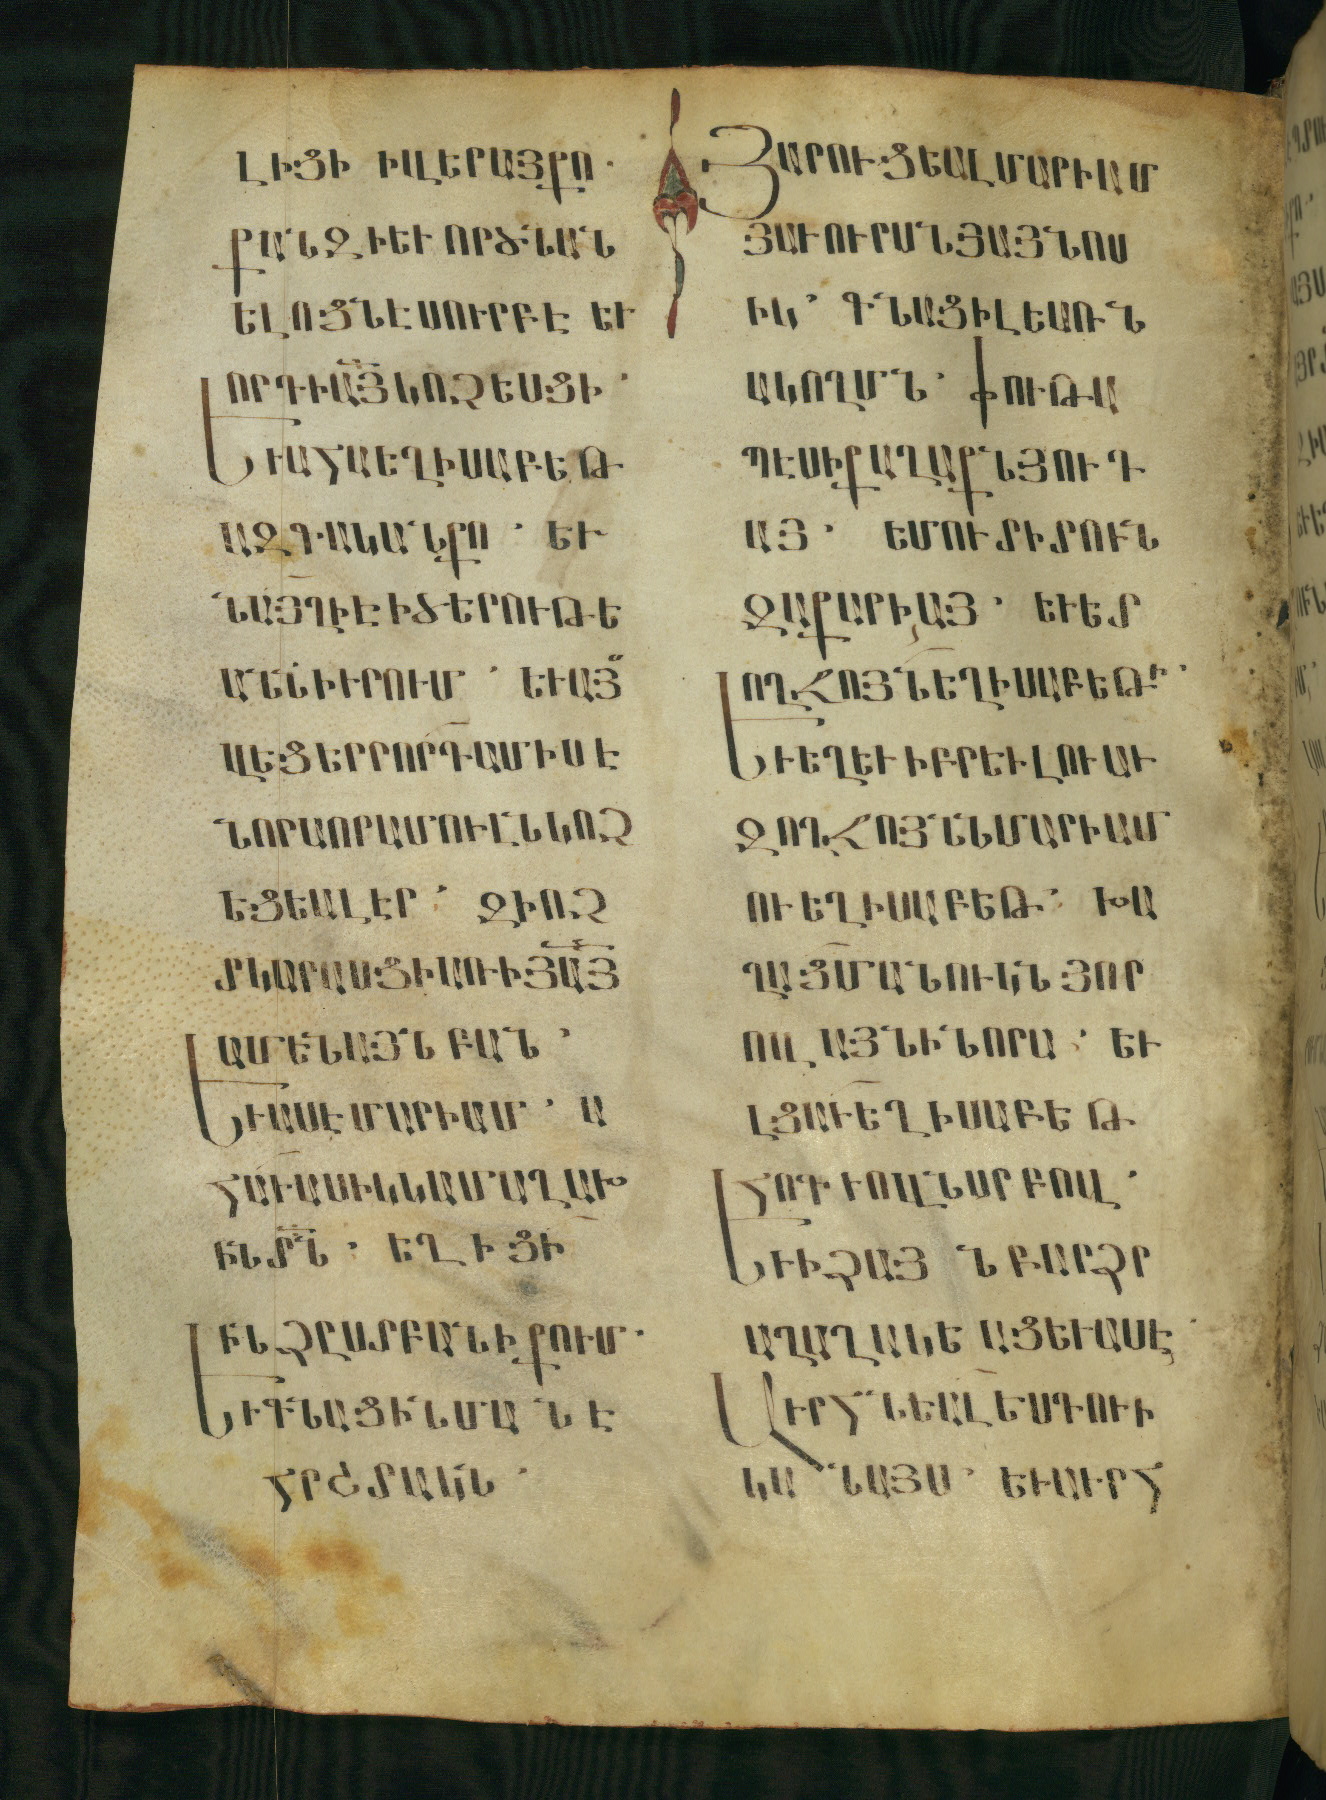 ԼԻՑԻ ԻՎԵՐԱՅՔՈ.
ՔԱՆԶԻԵՒՈՐԾՆԱՆ
ԵԼՈՑՆԷՍՈՒՐԲԷ ԵՒ
ՈՐԴԻԱՅԿՈՉԵՍՑԻ.
ԵՒԱՀԱԵՂԻՍԱԲԵԹ
ԱԶԳԱԿԱՆՔՈ. ԵՒ
ՆԱՅՂԻԷԻԾԵՐՈՒԹԵ
ԱՆԻՒՐՈՒՄ. ԵՒԱՅՍ
ՎԵՑԵՐՐՈՐԴԱՄԻՍԷ
ՆՈՐԱՈՐԱՄՈՒԼՆԿՈՉ
ԵՑԵԱԼԷՐ. ԶԻՈՉ
ՏԿԱՐԱՍՑԻԱՌԻՅԱՅ
ԱՄԵՆԱՅՆԲԱՆ.
ԵՒԱՍԷՄԱՐԻԱՄ. Ա
ՀԱՒԱՍԻԿԿԱՄԱՂԱԽ
ԻՆՏՆ. ԵՂԻՑԻ
ԻՆՁԸՍՏԲԱՆԻՔՈՒՄ.
ԵՒԳՆԱՑԻՆՄԱՆԷ
ՀՐՇՏԱԿՆ.
ՅԱՐՈՒՑԵԱԼՄԱՐԻԱՄ
ՅԱՒՈՒՐՍՆՅԱՅՆՈՍ
ԻԿ. ԳՆԱՑԻԼԵԱՌՆ
ԱԿՈՂՄՆ. ՓՈՒԹԱ
ՊԷՍԻՔԱՂԱՔՆՅՈՒԴ
ԱՅ. ԵՄՈՒՏԻՏՈՒՆ
ԶԱՔԱՐԻԱՅ. ԵՒԵՏ
ՈՂՋՈՅՆԵՂԻՍԱԲԵԹԻ.
ԵՒԵՂԵՒԻԲՐԵՒԼՈՒԱՒ
ԶՈՂՋՈՅՆՆՄԱՐԻԱՄ
ՈՒԵՂԻՍԱԲԵԹ. ԽԱ
ՂԱՑՄԱՆՈՒԿՆՅՈՐ
ՈՎԱՅՆԻՆՈՐԱ. ԵՒ
ԼՑԱՒԵՂԻՍԱԲԵԹ
ՀՈԳՒՈՎՆՍՐԲՈՎ.
ԵՒԻՁԱՅՆԲԱՐՁՐ
ԱՂԱՂԱԿԵԱՑԵՒԱՍԷ.
ԱՒՐՀՆԵԱԼԵՍԴՈՒԻ
ԿԱՆԱՅՍ. ԵՒԱՒՐՀ